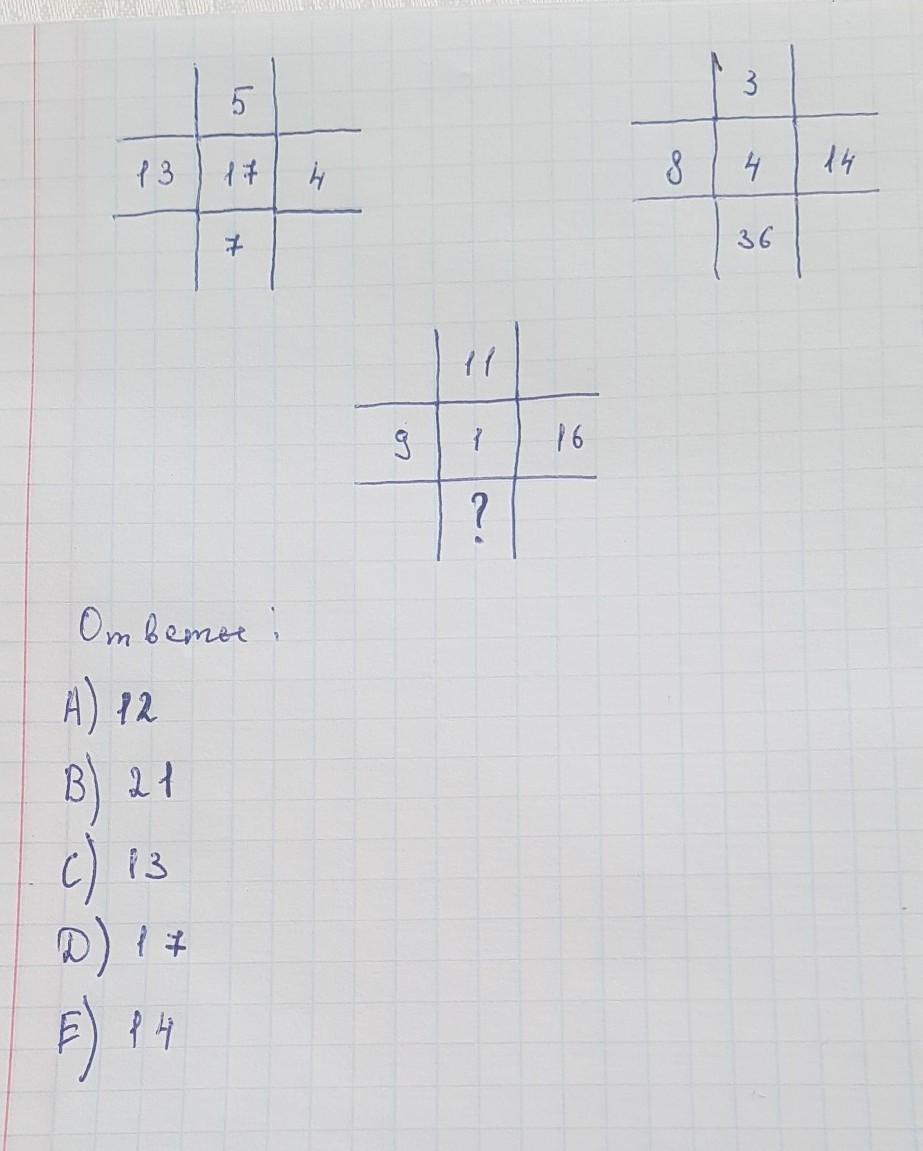 5
13 17 4
7
3
8 4 14
36
11
9 1 16
?
Ответы:
A) 12
B) 21
C) 13
D) 17
E) 14